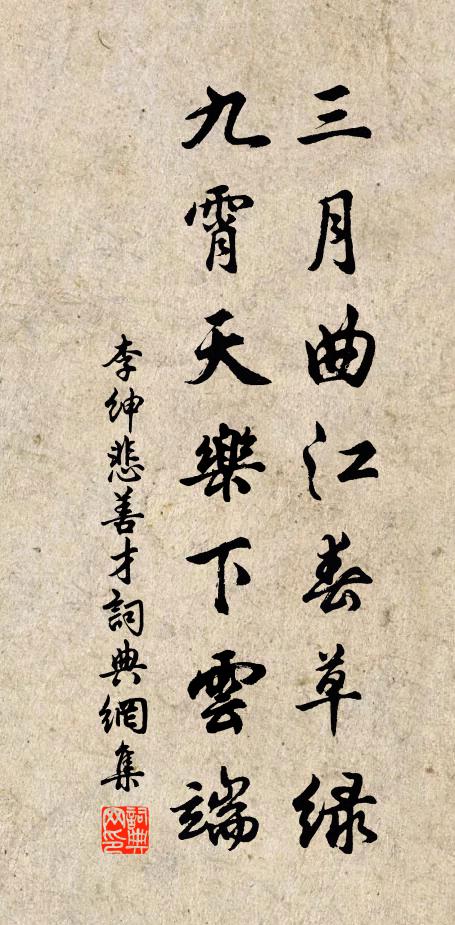 三月曲江春草绿
九霄天樂下雲端
李紳悲善才詞典網集
詞典网印